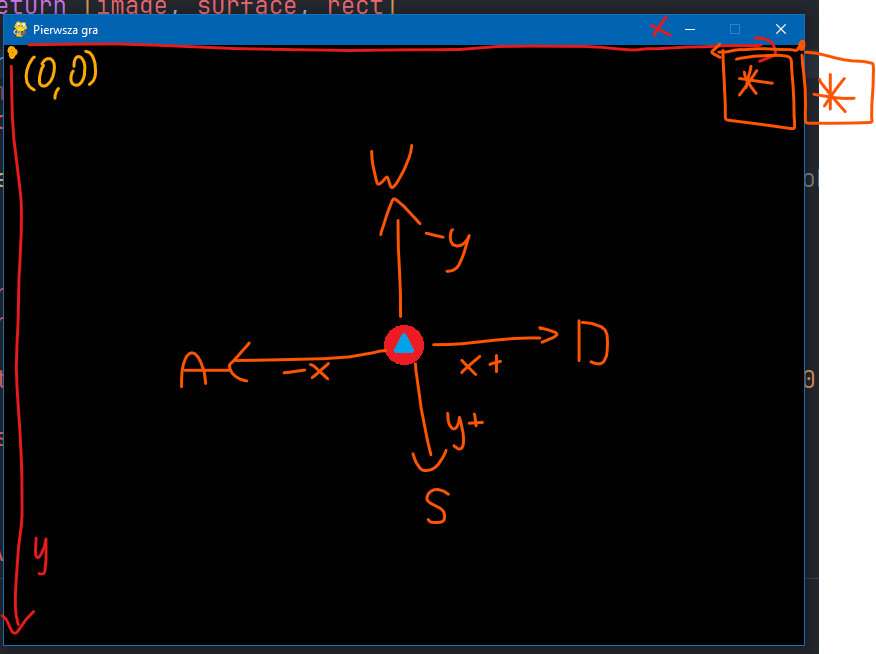 eturn [image, surface, rect]
Pierwsza gra
x
(0,0)
*
*
W
-y
A
-x
x+
D
y+
S
y